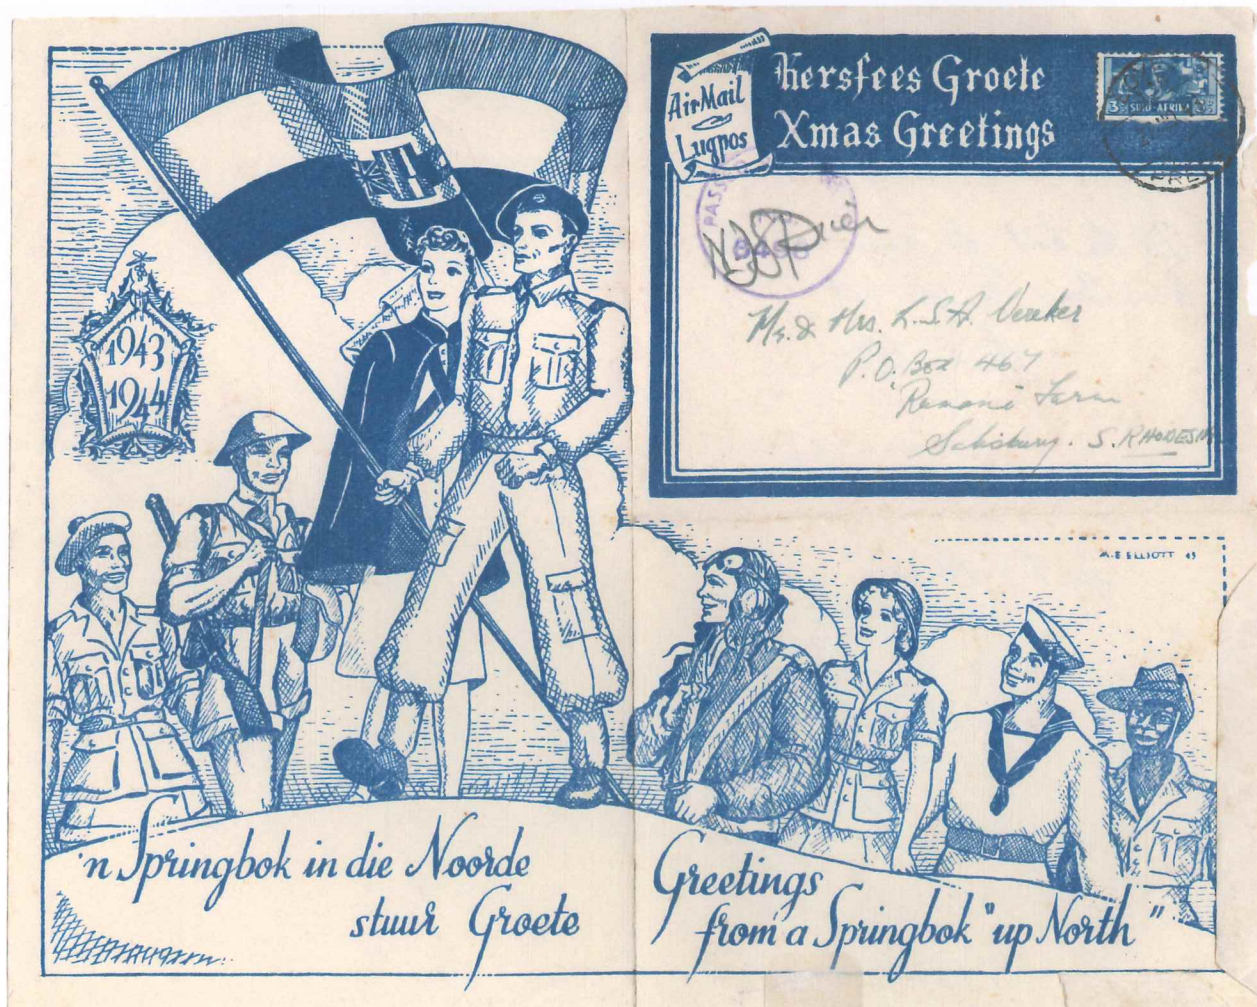 Air Mail
Lugpos
Kersfees Groete
Xmas Greetings
3D SUID-AFRIKA
PASS
Mr. & Mrs. L.S.A. Vereker
P.O. Box 467
Farm
Salisbury. S. RHODESIA
1943
1944
A.E ELLIOTT 43
'n Springbok in die Noorde
stuur Groete
Greetings
from a Springbok "up North"